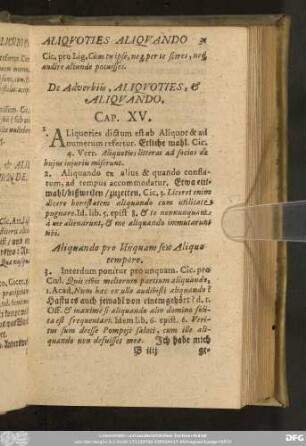 ALIQVOTIES ALIQVANDO
Cic. pro Lig. Cum tu ipse, neq; per te scires, neq;
audire aliunde potuisses.
De Adverbiis, ALIQVOTIES, &
ALIQVANDO.
CAP. XV.
1. ALiquoties dictum est ab Aliquot & ad
numerum refertur. Etliche mahl. Cic.
4. Verr. Aliquoties litteras ad socios de
hujus injuriis miserunt.
2. Aliquando ex alius & quando conflatum,
ad tempus accommodatur. Etwa ein-
mahl/bißweilen/ Cic. 3. Liceret enim
dicere honestatem aliquando cum utilitate
pugnare. Id. lib. 5. epist 8. & te nonnunquam
à me alienarunt, & me aliquando immutarunt
tibi.
Aliquando pro Unquam seu Aliquo
tempore.
3. Interdum ponitur pro unquam. Cic. pro
Cæl. Quis istic meliorum partium aliquando,
1. Acad. Num hæc ex illo audivisti aliquando?
Hastu es auch jemahl von einem gehört? d. 1.
Off. & maximè si aliquando alio domino soli-
ta est frequentari. Idem lib. 6. epist. 6. Veri-
tus sum deesse Pompeji saluti, cum ille ali-
quando non defuisset meæ. Ich habe mich
B iiij